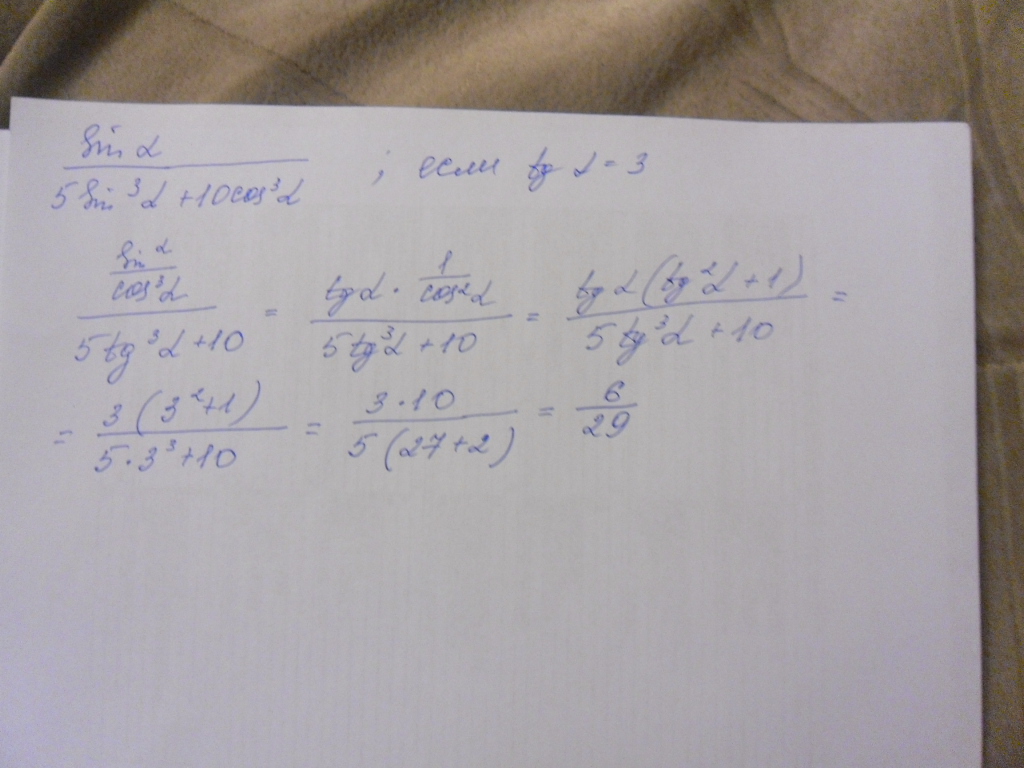 sin α / (5 sin³α + 10cos³α) ; если tg α = 3
(sin α / cos³α) / (5 tg³α + 10) = (tg α · 1/cos²α) / (5 tg³α + 10) = tg α (tg²α + 1) / (5 tg³α + 10) =
= 3 (3² + 1) / (5 · 3³ + 10) = 3 · 10 / (5 (27 + 2)) = 6/29